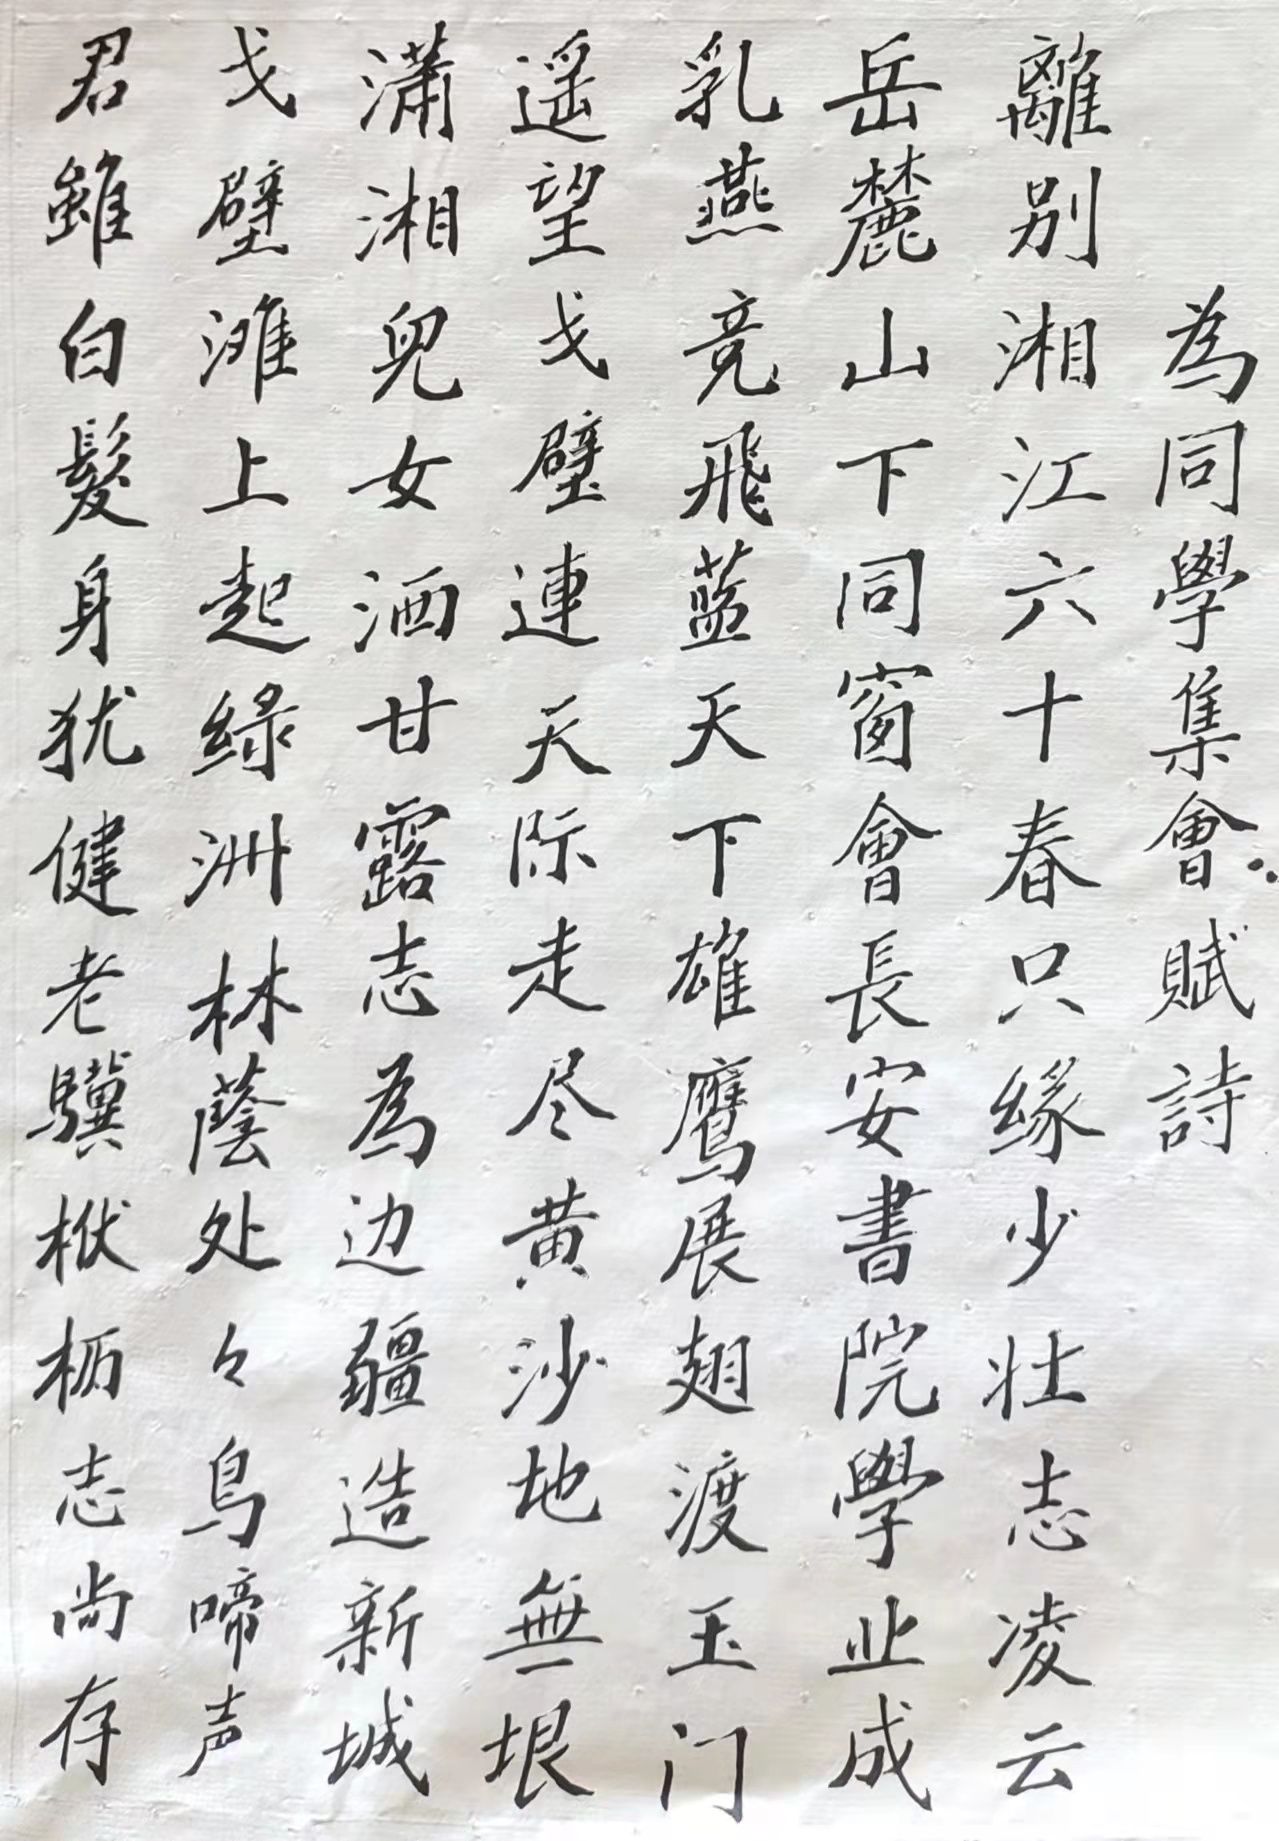 為同學集會賦詩
離别湘江六十春只緣少壮志凌云
岳麓山下同窗會長安書院學业成
乳燕竞飛蓝天下雄鹰展翅渡玉门
遥望戈壁連天际走尽黄沙地無垠
潇湘兒女洒甘露志為边疆造新城
戈壁滩上起緑洲林蔭处々鸟啼声
君雖白髮身犹健老驥枥志尚存